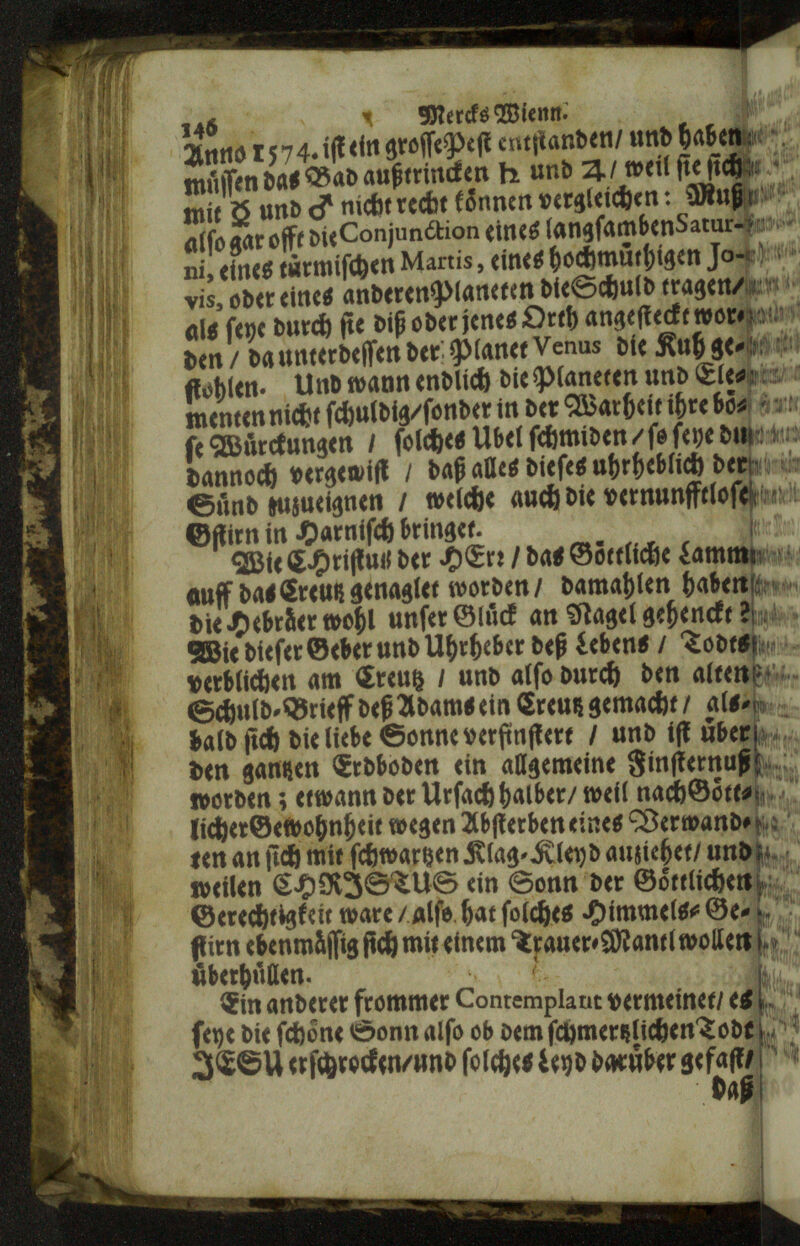 146 Mercks Wienn.
Anno 1574. ist ein grosse Pest entstanden/ und haben
müssen das Bad außtrincken ♄ und ♃/ weil sie sich
mit ☿ und ♂ nicht recht können vergleichen: Muß
also gar offt die Conjunction eines langsamben Satur-
ni, eines türmischen Martis, eines hochmüthigen Jo-
vis, oder eines anderen Planeten die Schuld tragen/
als seye durch sie diß oder jenes Orth angesteckt wor-
den / da unterdessen der Planet Venus die Kuh ge-
stohlen. Und wann endlich die Planeten und Ele-
menten nicht schuldig/ sonder in der Warheit ihre bö-
se Würckungen / solches Ubel schmiden / so seye du
dannoch vergewist / daß alles dieses uhrheblich der
Sünd zuzueignen / welche auch die vernunfftlose
Gstirn in Harnisch bringet.
Wie CHristus der HErr / das Göttliche Lamm
auff das Creutz genaglet worden / damahlen haben
die Hebräer wohl unser Glück an Nagel gehenckt?
Wie dieser Geber und Uhrheber deß Lebens / Todts
verblichen am Creutz / und also durch den alten
Schuld-Brieff deß Adams ein Creutz gemacht / als-
bald sich die liebe Sonne verfinstert / und ist über
den gantzen Erdboden ein allgemeine Finsternuß
worden; etwann der Ursach halber/ weil nach Gött-
licher Gewohnheit wegen Absterben eines Verwand-
ten an sich mit schwartzen Klag-Kleyd anziehet/ und
weilen CHRISTUS ein Sonn der Göttlichen
Gerechtigkeit ware / also hat solches Himmels-Ge-
stirn ebenmässig sich mit einem Trauer-Mantl wollen
überhüllen.
Ein anderer frommer Contemplant vermeinet/ es
seye die schöne Sonn also ob dem schmertzlichen Todt
JESU erschrocken/ und solches Leyd darüber gefast/
daß